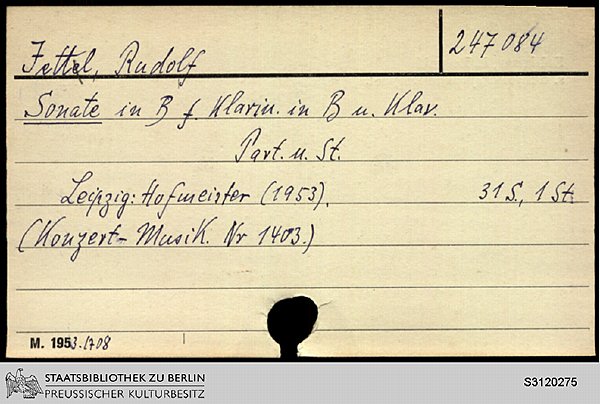 Jettel, Rudolf
247084
Sonate in B f. Klarin. in B u. Klav.
Part. u. St.
Leipzig: Hofmeister (1953).
31 S., 1 St.
(Konzert-Musik. Nr 1403.)
M. 1953.1708
STAATSBIBLIOTHEK ZU BERLIN
PREUSSISCHER KULTURBESITZ
S3120275